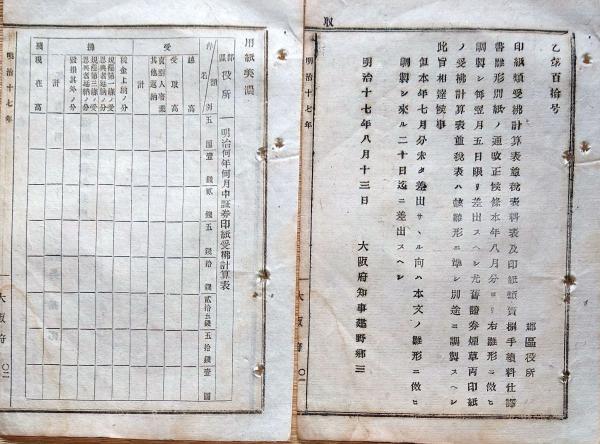 乙第百拾号
郡區役所
印紙類受拂計算表並税表料表及印紙類賣捌手續料仕譯
書雛形別紙ノ通改正候條本年八月分ヨリ右雛形ニ倣ヒ
調製シ毎翌月五日限リ差出スヘシ尤舊證券煙草両印紙
ノ受拂計算表並税表ハ該雛形ニ準シ別途ニ調製スヘシ
此旨相達候事
但本年七月分未タ差出サヽル向ハ本文ノ雛形ニ倣ヒ
調製シ來ル二十日迄ニ差出スヘシ
明治十七年八月十三日
大阪府知事建野郷三
明治十七年
大阪府
用紙美濃
郡區役所
明治何年何月中証券印紙受拂計算表
五厘
壹錢
貳錢
五錢
拾錢
貳拾五錢
五拾錢
壹圓
越高
受
受取高
其他返納
計
拂
税金上納ノ分
計
現在高
明治十七年
大阪府